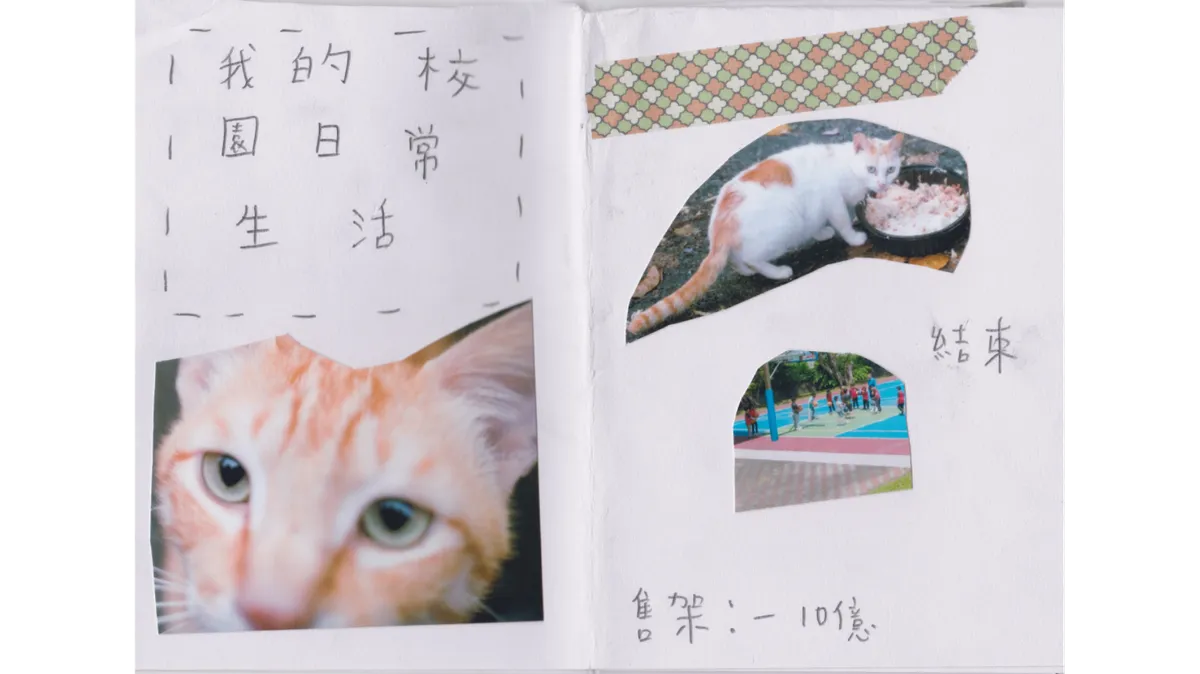 我的校
園日常
生活
結束
售架：－10億